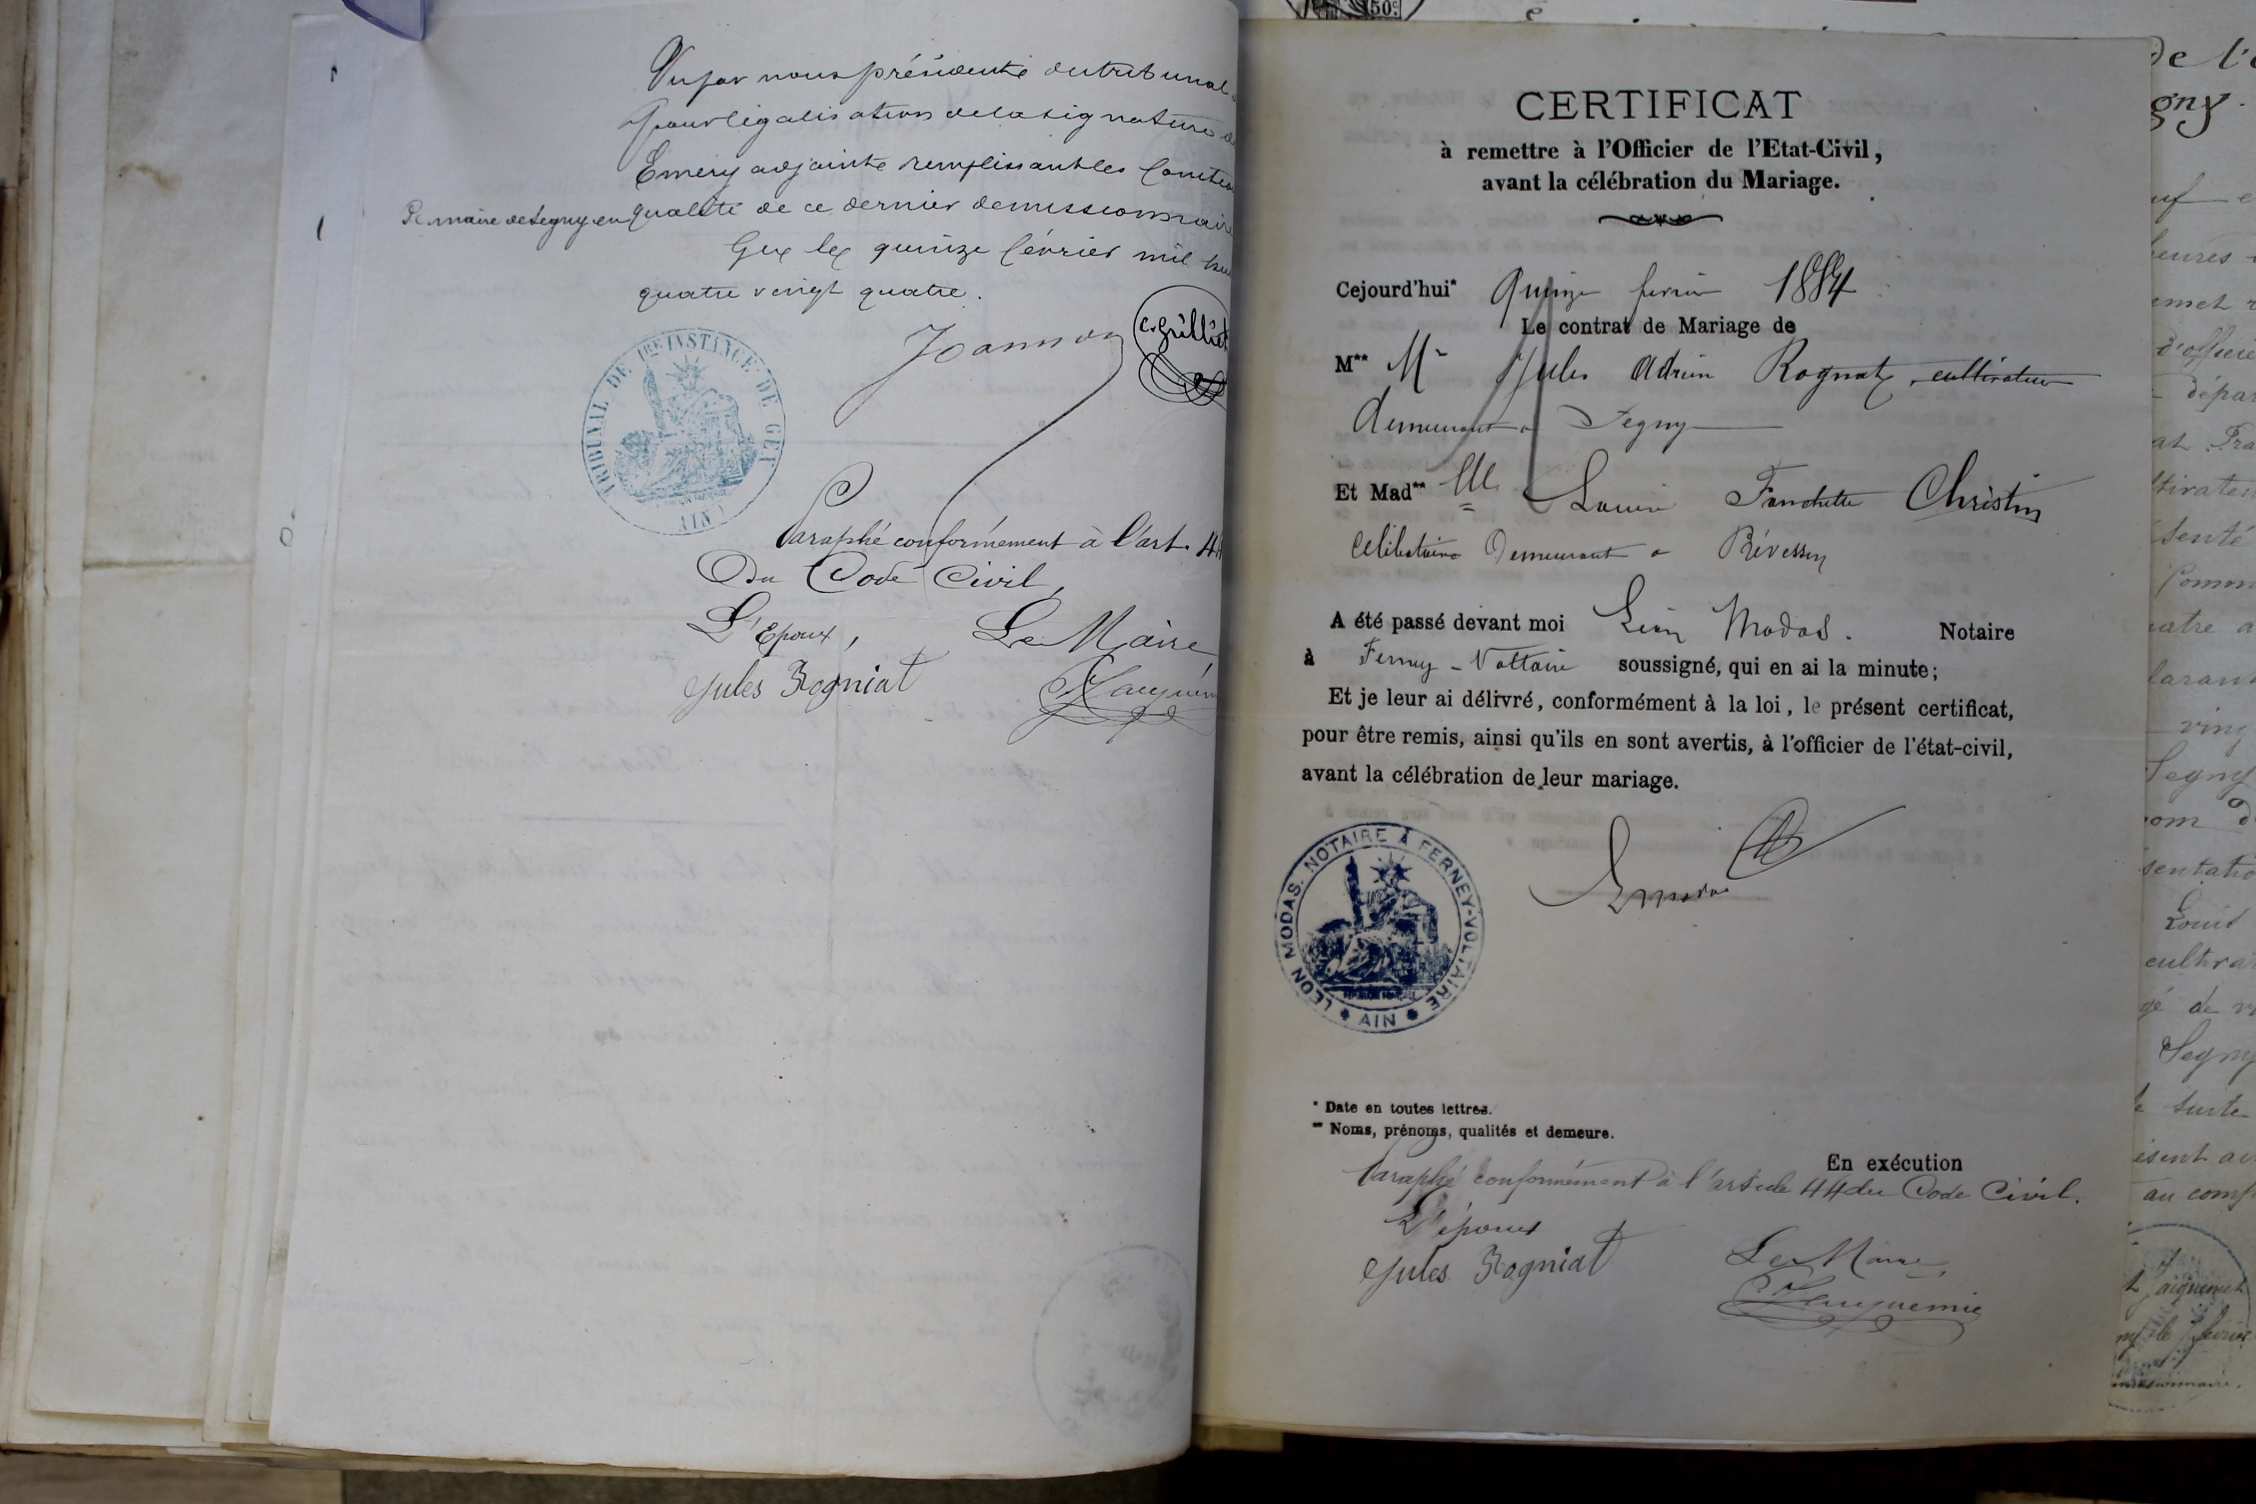 Vu par nous président du tribunal
pour légalisation de la signature de
Emery adjoint remplissant les fonctions
De maire de Segny en qualité de ce dernier demissionnaire
Gex le quinze février mil huit
quatre vingt quatre.
C. Grilliet
TRIBUNAL DE 1RE INSTANCE DE GEX
(AIN)
Paraphé conformément à l'art. 44
Du Code Civil,
L'Epoux, Le Maire,
Jules Rogniat
50c
CERTIFICAT
à remettre à l'Officier de l'Etat-Civil,
avant la célébration du Mariage.
Cejourd'hui* Quinze février 1884
Le contrat de Mariage de
M** Mr Jules Adrien Rogniat, cultivateur
demeurant à Segny
Et Mad** Elle Louise Fanchette Christin
célibataire Demeurant à Prévessin
A été passé devant moi Léon Modas. Notaire
à Ferney-Voltaire soussigné, qui en ai la minute;
Et je leur ai délivré, conformément à la loi, le présent certificat,
pour être remis, ainsi qu'ils en sont avertis, à l'officier de l'état-civil,
avant la célébration de leur mariage.
LEON MODAS. NOTAIRE A FERNEY-VOLTAIRE
AIN
* Date en toutes lettres.
** Noms, prénoms, qualités et demeure.
En exécution
Paraphé conformément à l'article 44 du Code Civil.
L'époux
Jules Rogniat
Le Maire,
de l'
gny.
heures
d'office
dépar
cultivateur
senté
Comm
vatre a
laran
ving
Segny
nom d
sentatio
Louis
cultiva
gé de v
Segny
suite
au comp